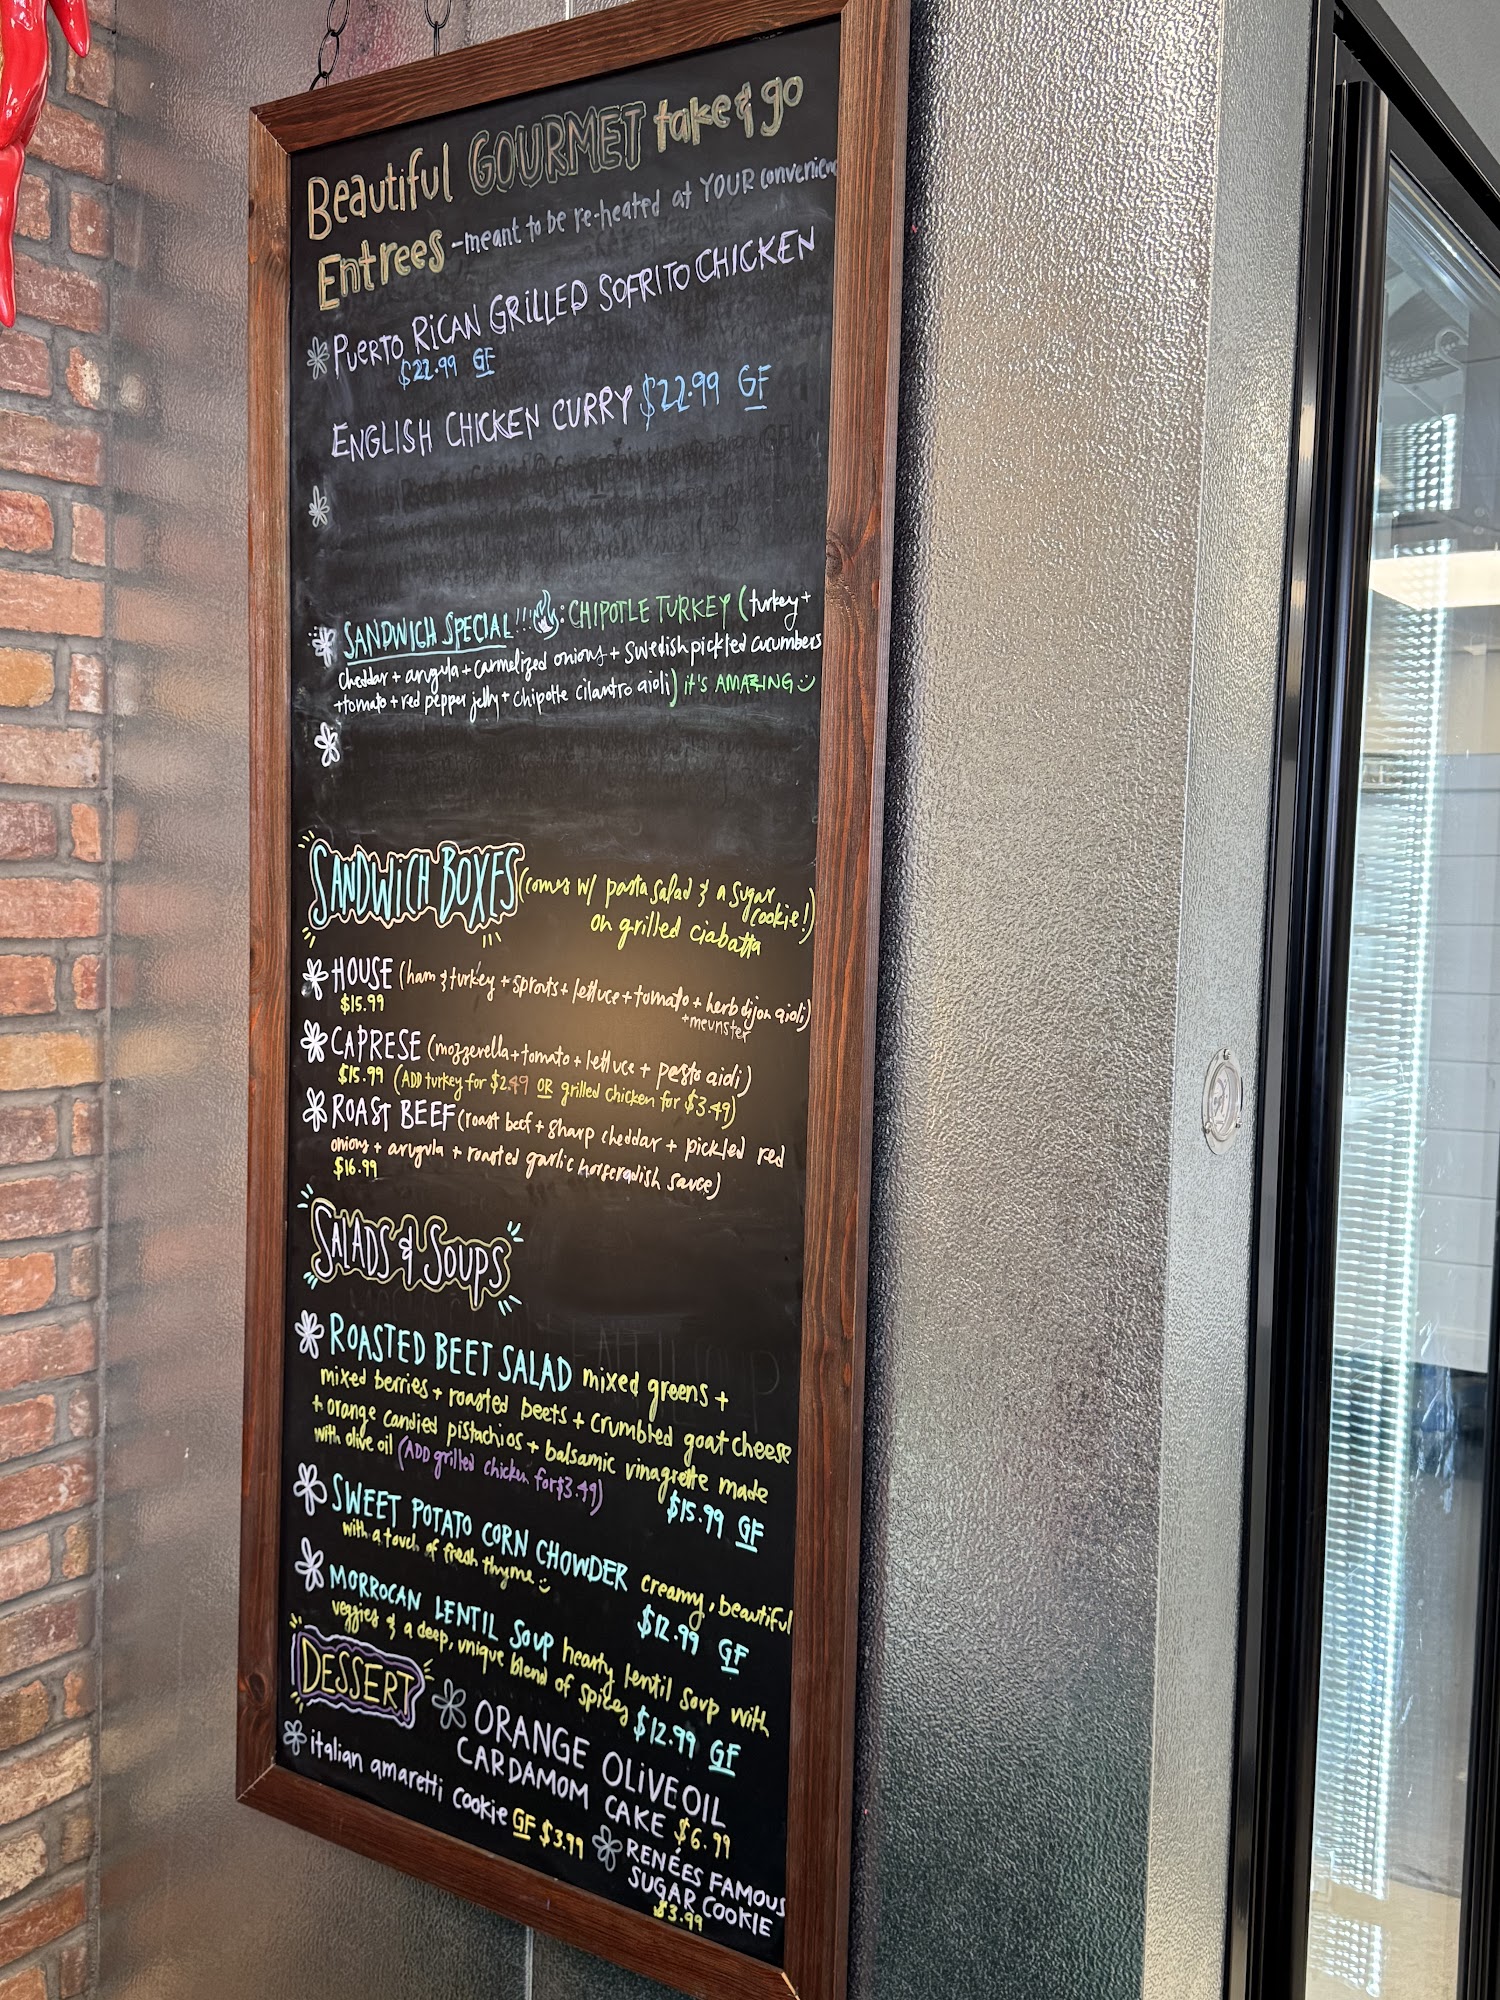 Beautiful GOURMET take & go
Entrees - meant to be re-heated at YOUR convenienc
PUERTO RICAN GRILLED SOFRITO CHICKEN
$22.99 GF
ENGLISH CHICKEN CURRY $22.99 GF
SANDWICH SPECIAL!!! : CHIPOTLE TURKEY (turkey +
cheddar + arugula + carmelized onions + swedish pickled cucumbers
+ tomato + red pepper jelly + chipotle cilantro aioli) it's AMAZING
SANDWICH BOXES (comes w/ pasta salad & a sugar
cookie!)
on grilled ciabatta
HOUSE (ham & turkey + sprouts + lettuce + tomato + herb dijon aioli)
+ meunster
$15.99
CAPRESE (mozzerella + tomato + lettuce + pesto aioli)
$15.99 (ADD turkey for $2.49 OR grilled chicken for $3.49)
ROAST BEEF (roast beef + sharp cheddar + pickled red
onions + arugula + roasted garlic horseradish sauce)
$16.99
SALADS & SOUPS
ROASTED BEET SALAD mixed greens +
mixed berries + roasted beets + crumbled goat cheese
+ orange candied pistachios + balsamic vinagrette made
with olive oil (ADD grilled chicken for $3.49)
$15.99 GF
SWEET POTATO CORN CHOWDER creamy, beautiful
with a touch of fresh thyme
$12.99 GF
MORROCAN LENTIL SOUP hearty lentil soup with
veggies & a deep, unique blend of spices $12.99 GF
DESSERT
ORANGE OLIVE OIL
CARDAMOM CAKE $6.99
italian amaretti cookie GF $3.99
RENÉES FAMOUS
SUGAR COOKIE
$3.99